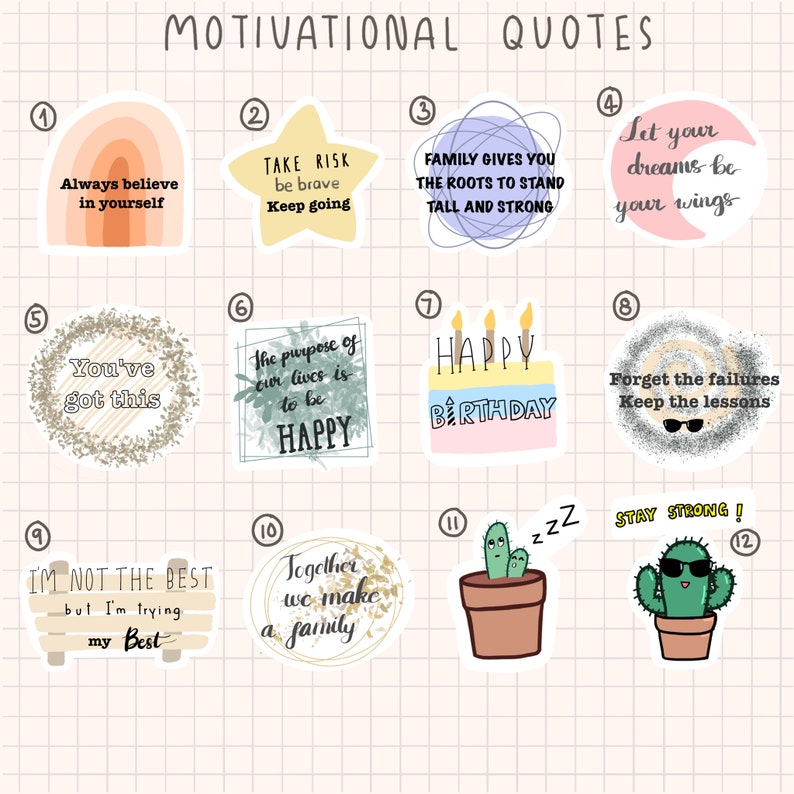 MOTIVATIONAL QUOTES
1
Always believe
in yourself
2
TAKE RISK
be brave
Keep going
3
FAMILY GIVES YOU
THE ROOTS TO STAND
TALL AND STRONG
4
Let your
dreams be
your wings
5
You've
got this
6
The purpose of
our lives is
to be
HAPPY
7
HAPPY
BIRTHDAY
8
Forget the failures
Keep the lessons
9
I'M NOT THE BEST
but I'm trying
my Best
10
Together
we make
a family
11
zzZ
12
STAY STRONG!